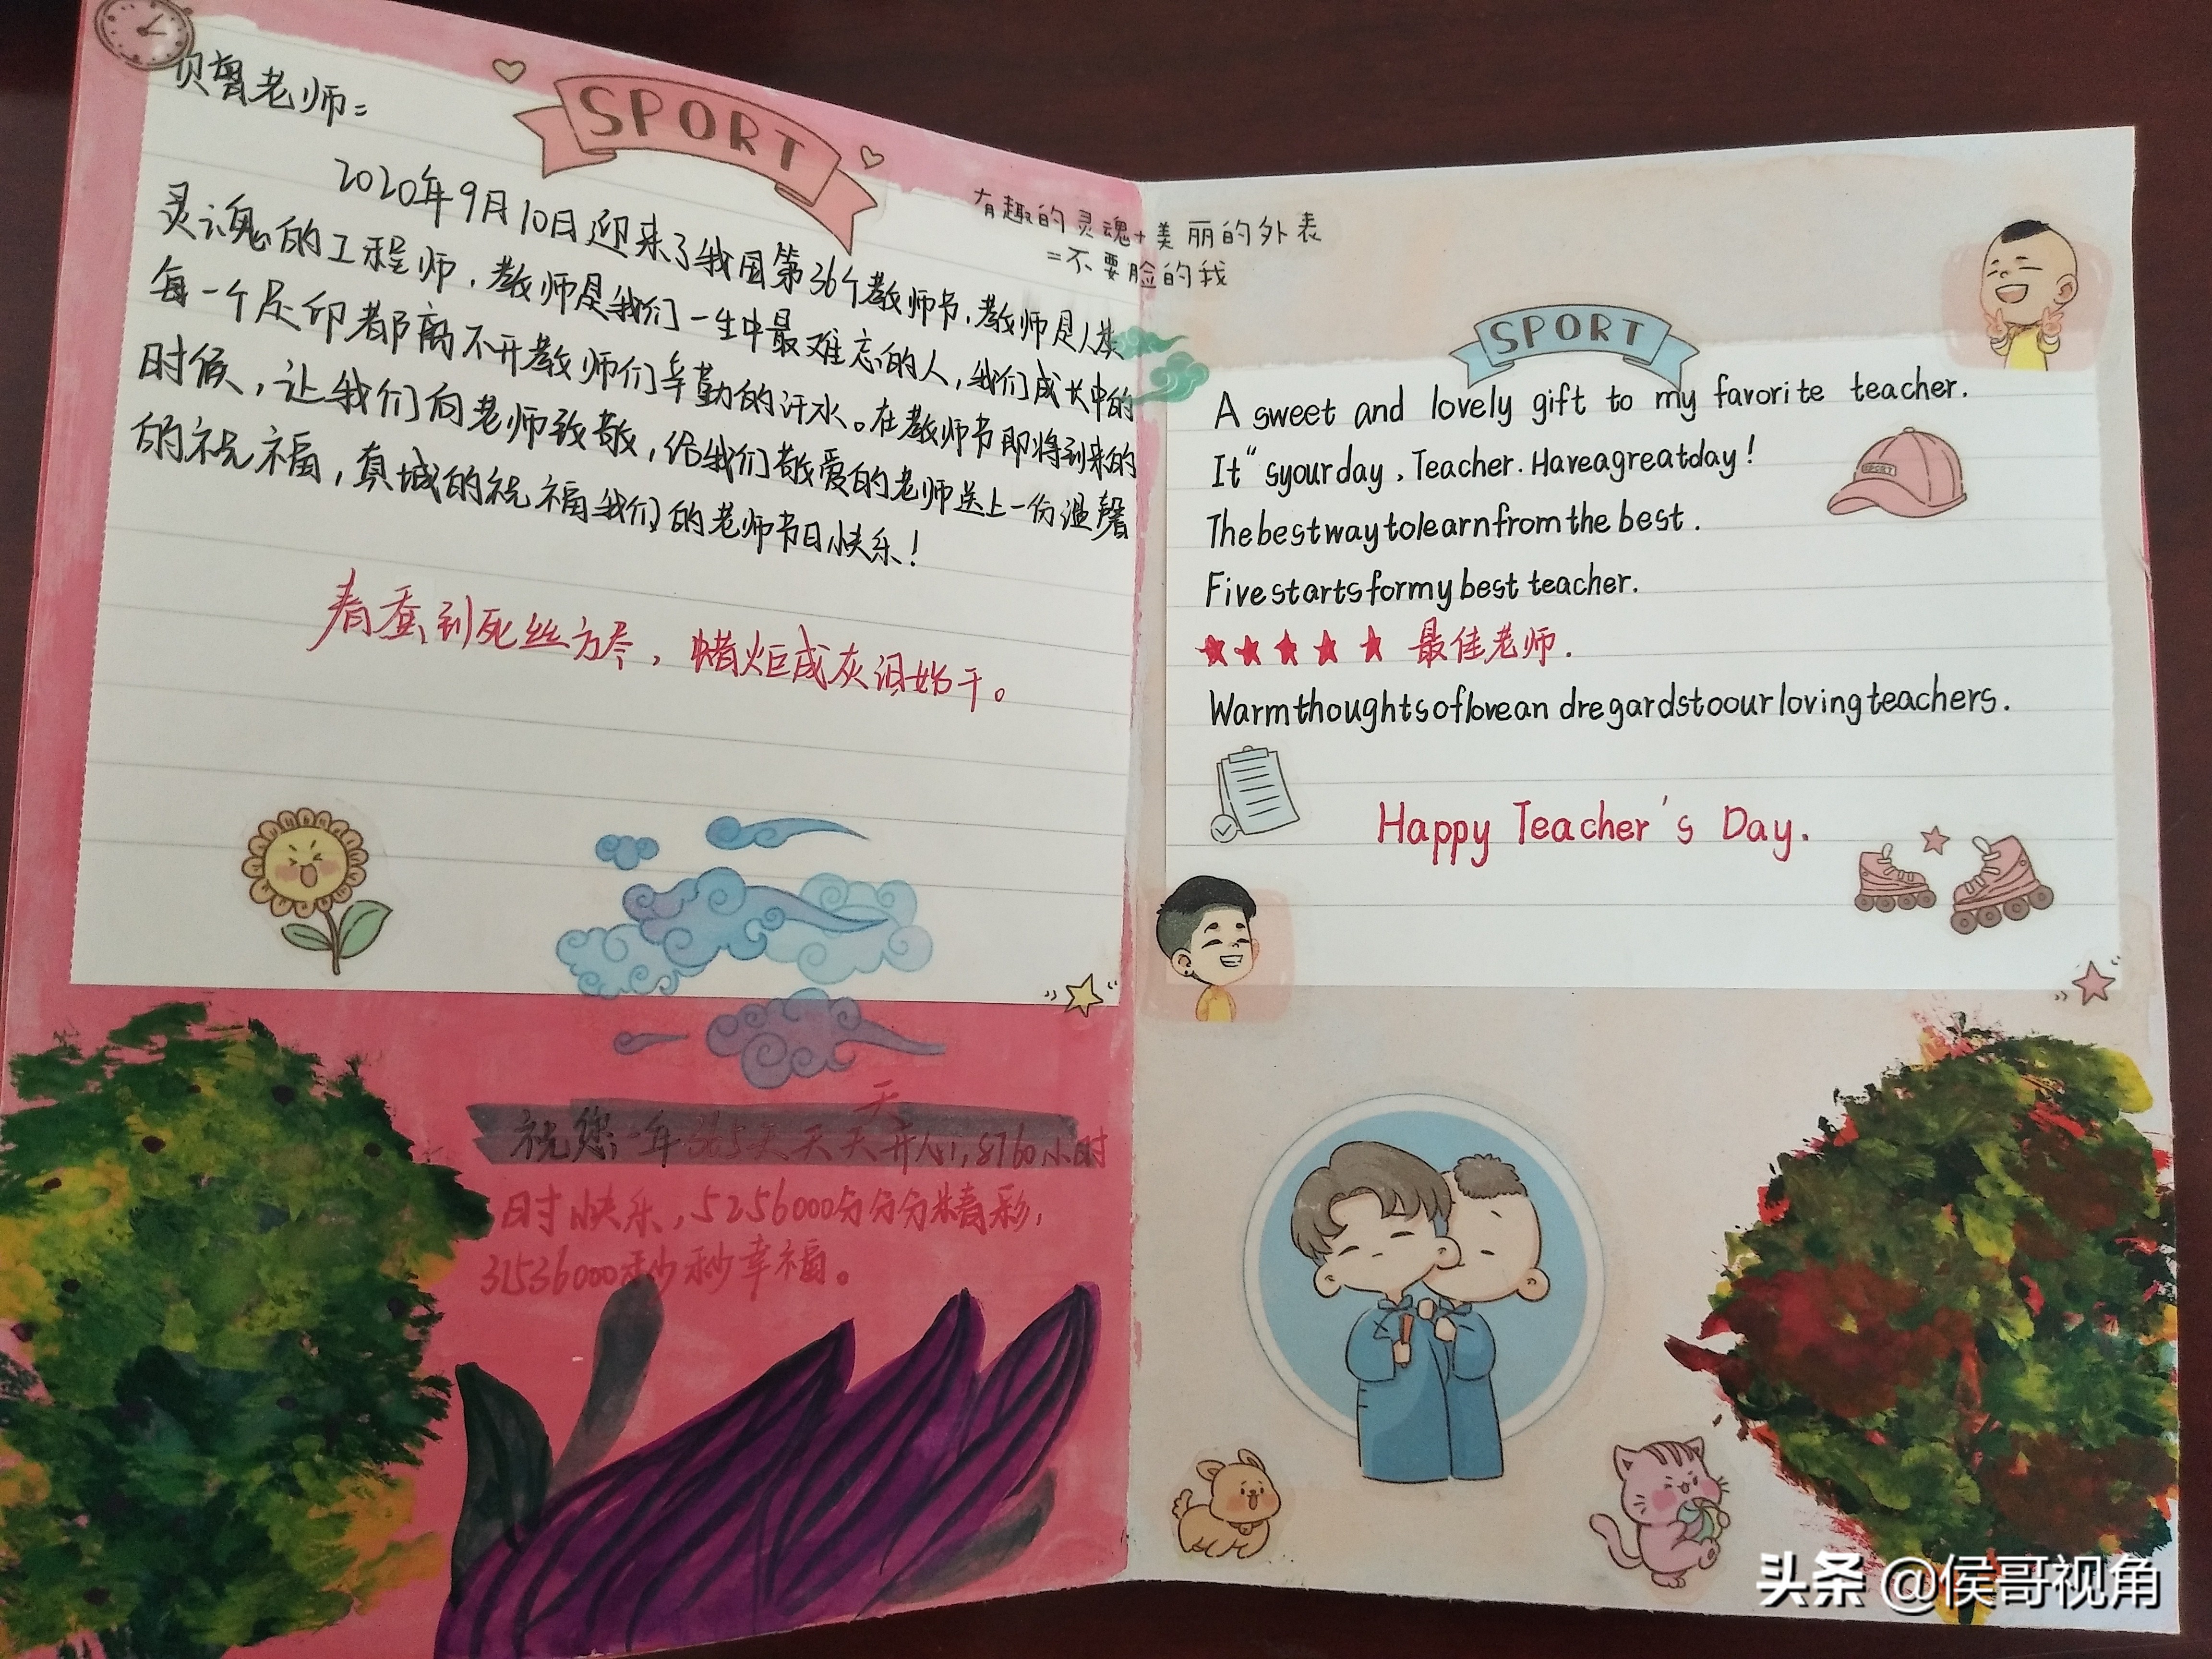 贝曾老师:
SPORT
2020年9月10日迎来了我国第36个教师节,教师是人类
灵魂的工程师,教师是我们一生中最难忘的人,我们成长中的
每一个足印都离不开教师们辛勤的汗水。在教师节即将到来的
时候,让我们向老师致敬,给我们敬爱的老师送上一份温馨
的祝福,真城的祝福我们的老师节日快乐!
春蚕到死丝方尽,蜡炬成灰泪始干。
天
祝您一年365天天天开心,8760小时
时快乐,5256000分分分精彩,
31536000秒秒幸福。
有趣的灵魂+美丽的外表
=不要脸的我
SPORT
A sweet and lovely gift to my favorite teacher.
It“syourday,Teacher.Haveagreatday!
SPORT
Thebestwaytolearnfromthe best.
Fivestartsformybest teacher.
★★★★★ 最佳老师.
Warmthoughtsofloveandregardstoourlovingteachers.
Happy Teacher's Day.
头条 @侯哥视角